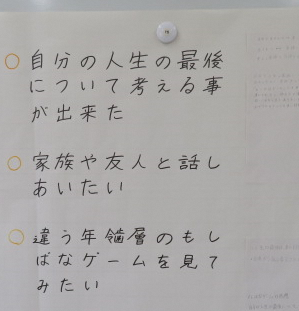 自分の人生の最後
について考える事
が出来た
家族や友人と話し
あいたい
違う年齢層のもし
ばなゲームを見て
みたい